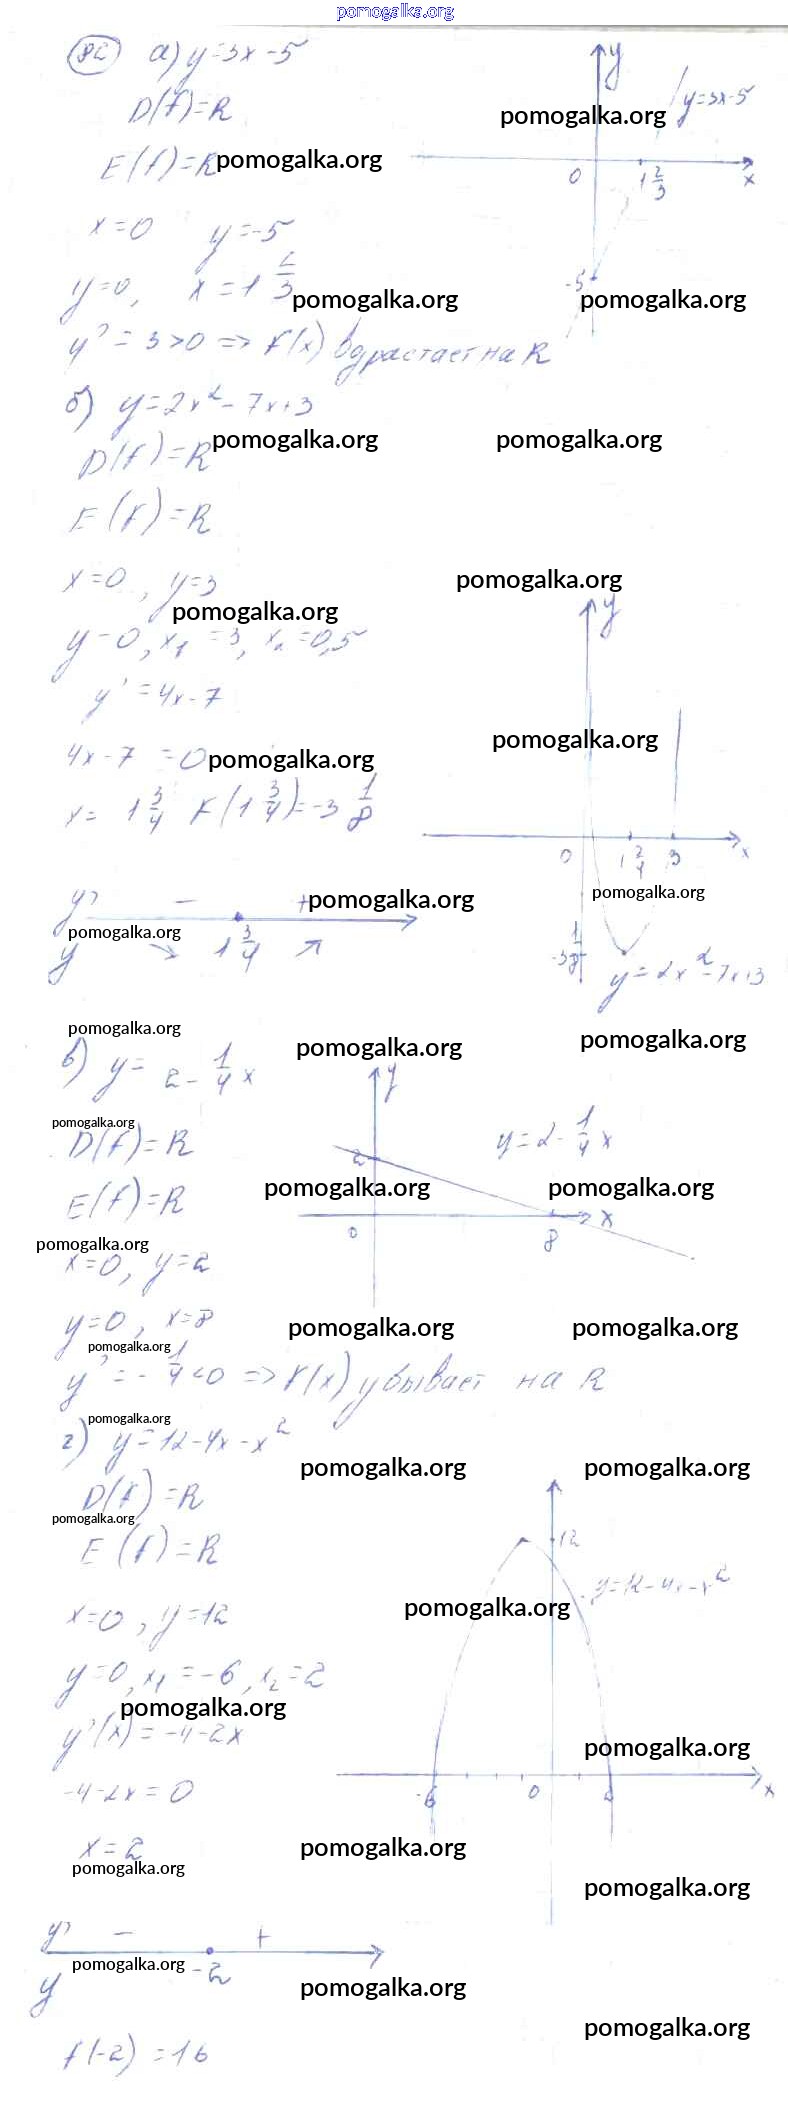 pomogalka.org
82 а) y=3x-5
y
y=3x-5
pomogalka.org
D(f)=R
E(f)=R pomogalka.org
0 1 2/3 x
x=0 y=-5
-5
y=0, x=1 2/3 pomogalka.org pomogalka.org
y'=3>0 => f(x) вдрастает на R
б) y=2x²-7x+3
D(f)=R pomogalka.org pomogalka.org
E(f)=R
x=0, y=3 pomogalka.org
pomogalka.org y
y=0, x₁=3, x₂=0,5
y'=4x-7
pomogalka.org
4x-7=0 pomogalka.org
x= 1 3/4 f(1 3/4)=-3 1/8
0 1 3/4 3 x
y' - + pomogalka.org pomogalka.org
pomogalka.org
y 1 3/4 -3 1/8
y=2x²-7x+3
pomogalka.org pomogalka.org pomogalka.org
в) y=2-1/4x
y
pomogalka.org
D(f)=R y=2-1/4x
2
E(f)=R pomogalka.org pomogalka.org
0 8 x
pomogalka.org
x=0, y=2
y=0, x=8 pomogalka.org pomogalka.org
pomogalka.org
y'=-1/4<0 => f(x) убывает на R
pomogalka.org
г) y=12-4x-x²
pomogalka.org pomogalka.org
D(f)=R
pomogalka.org
E(f)=R
12
y=12-4x-x²
x=0, y=12 pomogalka.org
y=0, x₁=-6, x₂=2
pomogalka.org
y'(x)=-4-2x
pomogalka.org
-4-2x=0
-6 0 2 x
x=2 pomogalka.org
pomogalka.org pomogalka.org
y' - +
pomogalka.org -2
y pomogalka.org
pomogalka.org
f(-2)=16